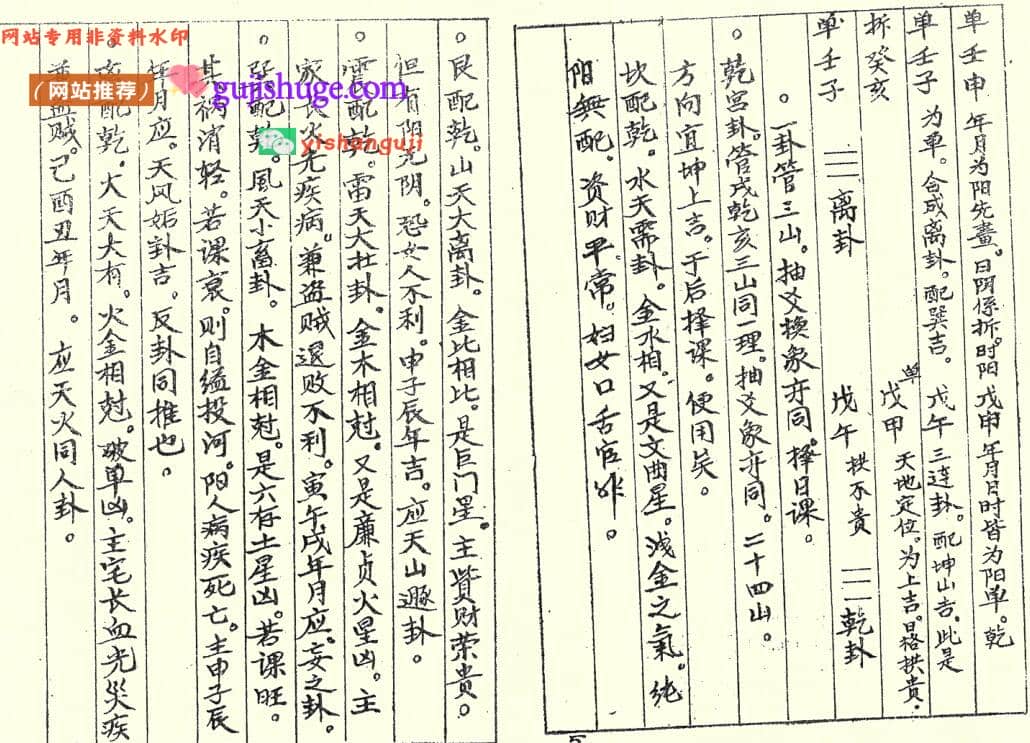 单壬申 年月为阳先画。日阴係拆。时阳 戊申年月日时皆为阳单。乾
单壬子 为单。合成离卦。配巽吉。 戊午 三连卦。配坤山吉。此是
拆癸亥 单戊甲 天地定位。为上吉。格拱贵。
单壬子 三 离卦 戊午 拱不贵 三 乾卦
。一卦管三山。抽爻换象亦同。择日课。
。乾宫卦。管戌乾亥三山同一理。抽爻象亦同。二十四山。
方向宜坤上吉。于后择课。便用矣。
坎配乾。水天需卦。金水相。又是文曲星。浅金之氣。纯
阳無配。资财平常。妇女口舌官非。
5
。艮配乾。山天大离卦。金比相比。是巨门星。主贤财荣贵。
但有阳无阴。恐女人不利。申子辰年吉。应天山遯卦。
。震配乾。雷天大壮卦。金木相尅。又是廉贞火星凶。主
家长火光疾病。兼盗贼退败不利。寅午戌年月应。妄之卦。
。巽配乾。風天小畜卦。木金相尅。是六存土星凶。若课旺。
其祸消轻。若课衰。则自缢投河。阳人病疾死亡。主申子辰
年月应。天风姤卦吉。反卦同推也。
。离配乾。火天大有。火金相尅。破单凶。主宅长血光災疾
盗贼。己酉丑年月。应天火同人卦。
网站专用非资料水印
(网站推荐)
gujishuge.com
yishanguji